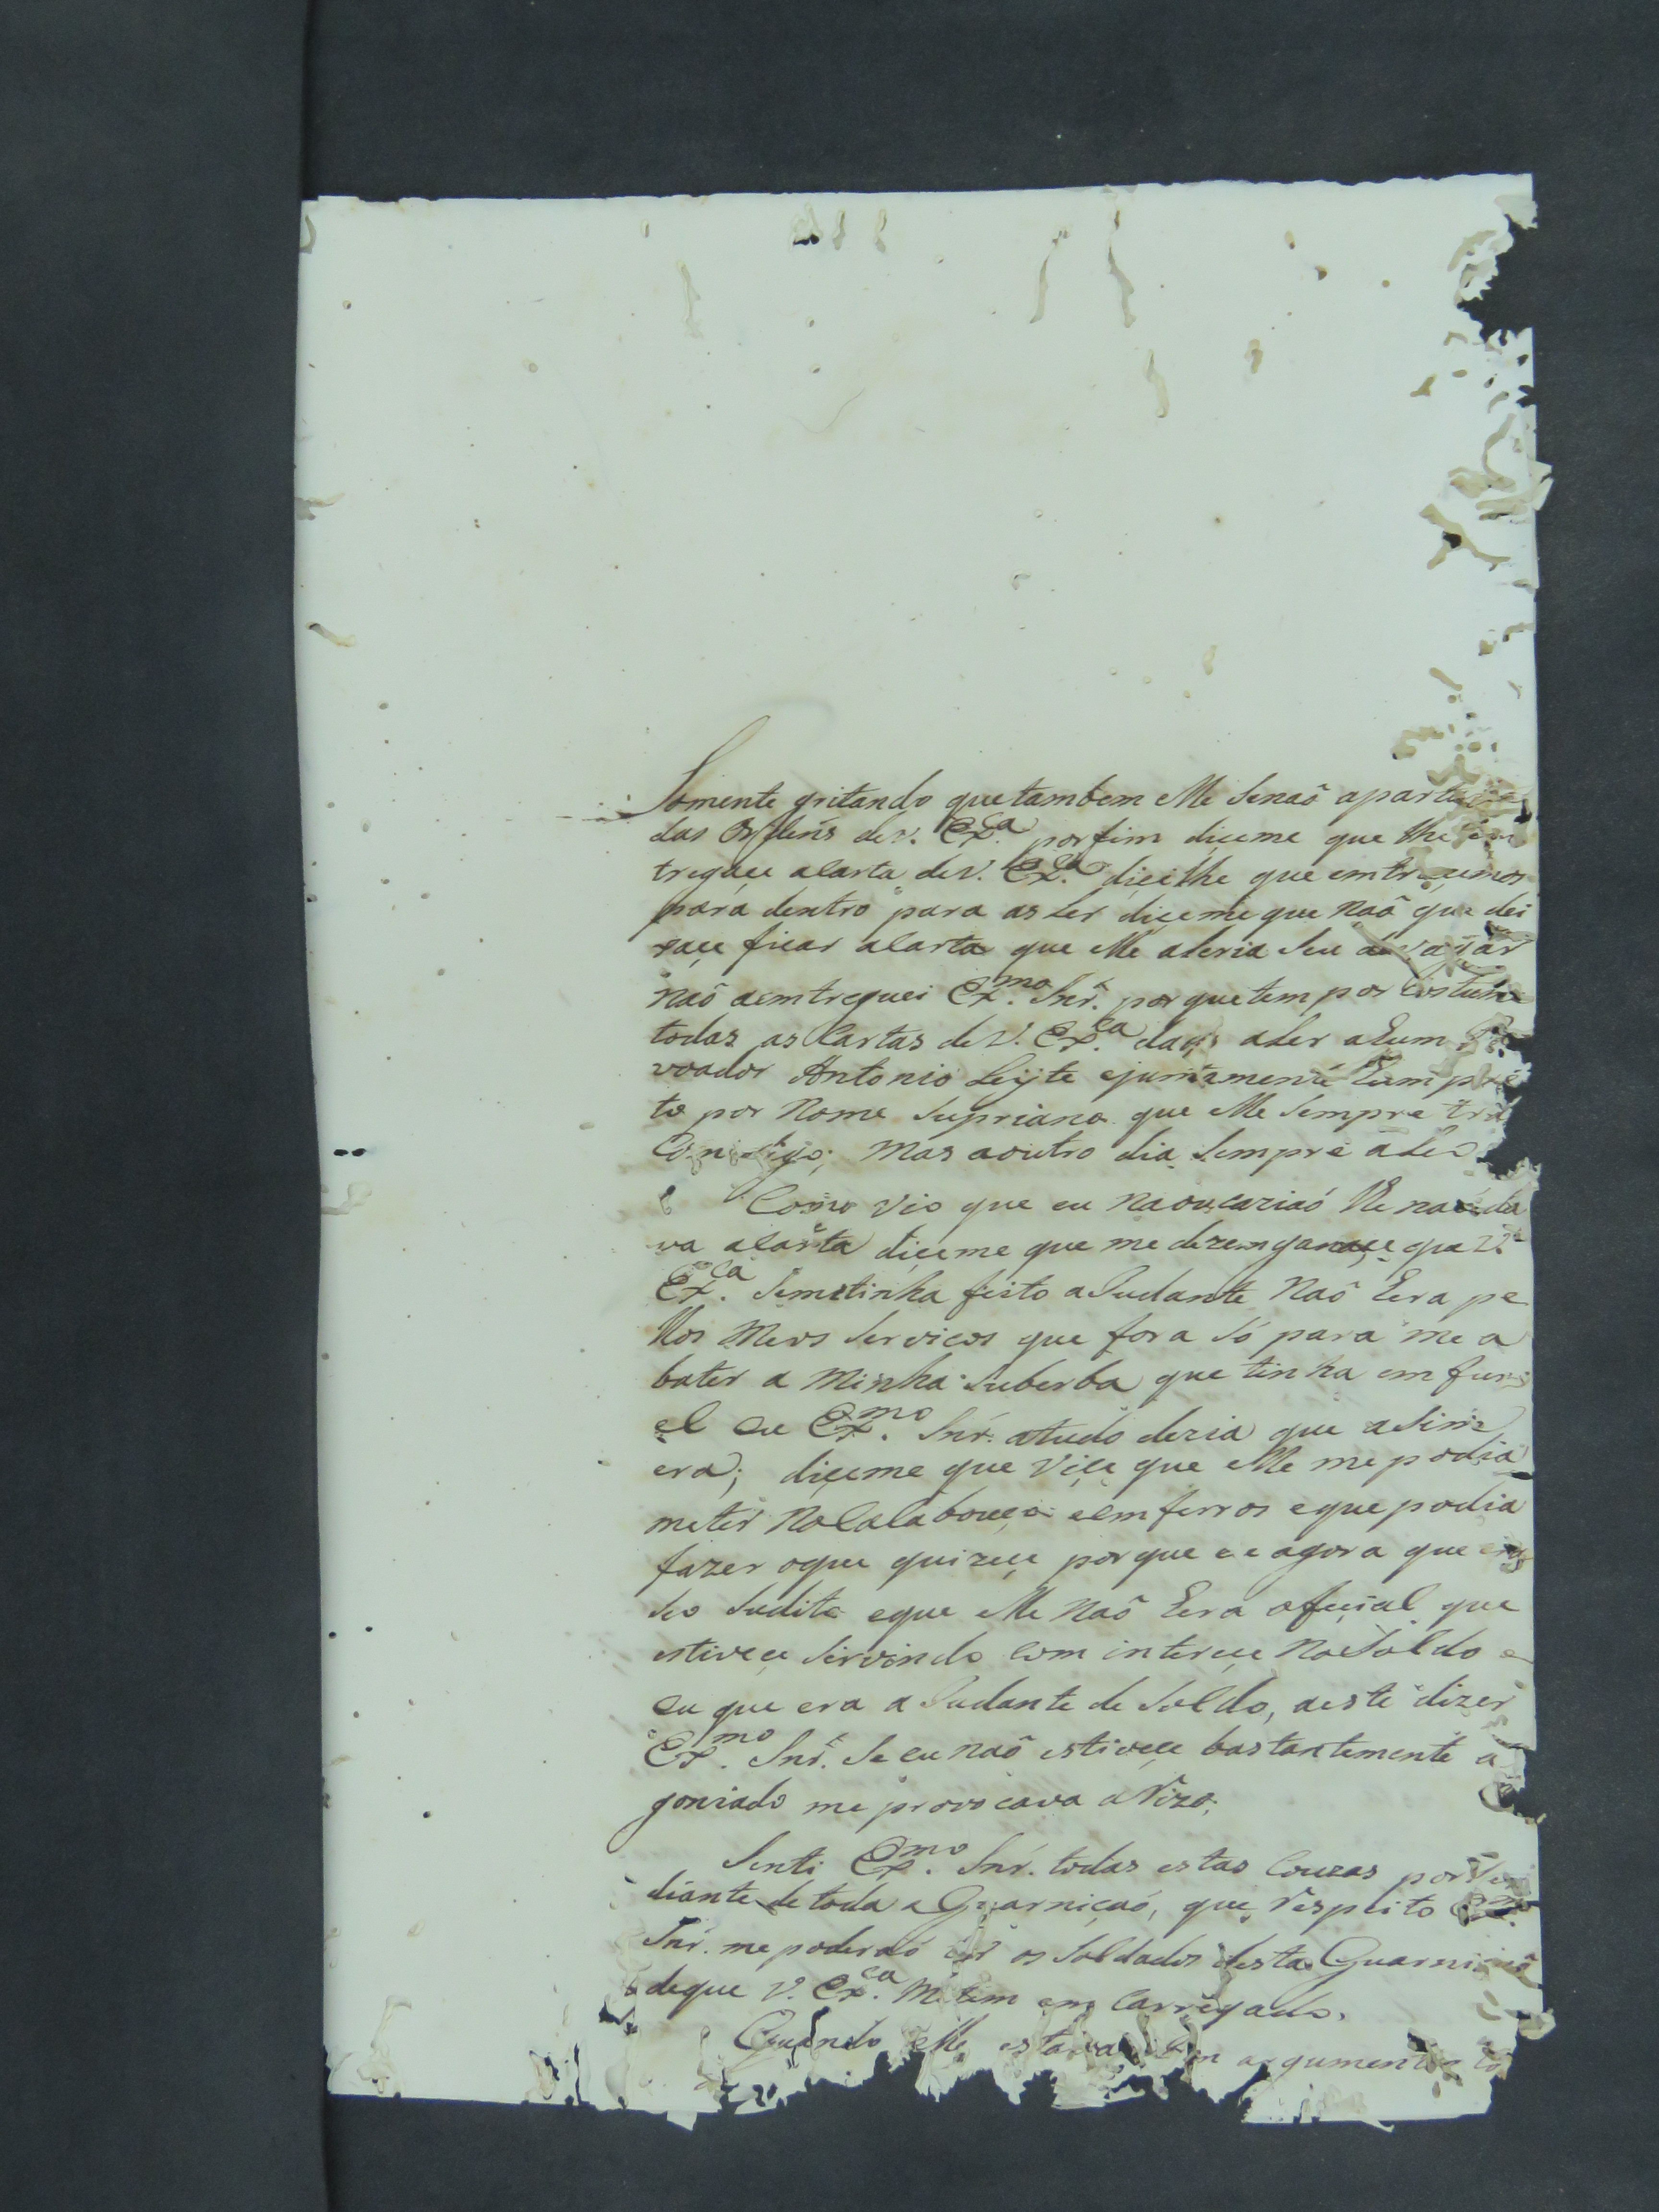 Somente gritando que tambem elle senaõ apartava
das Ordens de V. Ex.ca por fim diçeme que lhe em
tregaçe aCarta de V. Ex.ca diçelhe que emtracemos
para dentro para as Ler diçeme que naõ que dei
xaçe ficar aCarta que elle aLeria Seu devagar
naõ aemtreguei Ex.mo Snr. porque tem por Costume
todas as Cartas de V. Ex.ca dalas aLer a hum Po
voador Antonio Leyte ejuntamente hum pre
to por Nome Supriano que elle Sempre tras
Comsigo; mas aoutro dia Sempre aLeo
Como vio que eu Naõ lhe da
va aCarta diçeme que me dezemganaçe que V.
Ex.ca Seme tinha feito aJudante Naõ hera pe
llos Meos Servicos que fora Só para me a
bater a Minha Suberba que tinha em fim
el eu Ex.mo Snr. atudo dezia que asim
era; diçeme que Viçe que elle me podia
meter NoCalabouço eemferros eque podia
fazer oque quizeçe porque eu agora que era
Seo Sudito eque elle Naõ hera ofiçial que
estiveçe Servindo Com intereçe NoSoldo e
eu que era aJudante de Soldo, aeste dizer
Ex.mo Snr. Se eu naõ estiveçe bastantemente a
goniado me provocava aRizo;
Senti Ex.mo Snr. todas estas Couzas por Ser
diante de toda aGuarniçaõ, que Respeito Ex.mo
Snr. me poderaõ ter os Soldados desta Guarniçaõ
deque V. Ex.ca Me tem em Carregado.
Quando elle estava Com argumentos Co